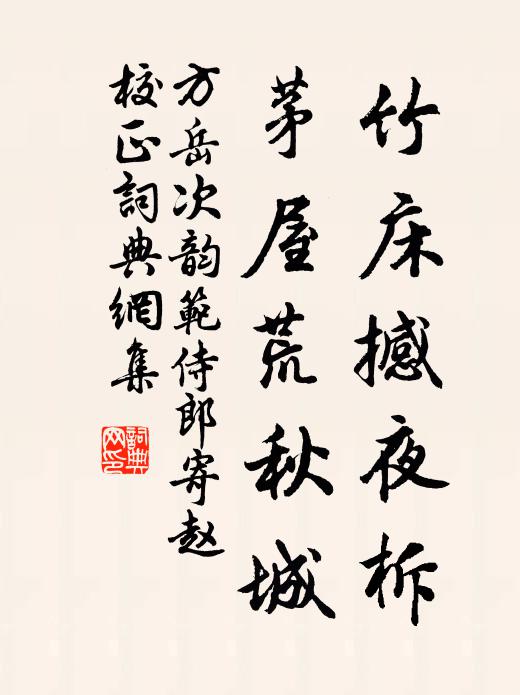 竹床撼夜柝
茅屋荒秋城
方岳次韵範侍郎寄赵
校正詞典網集
詞典
网印